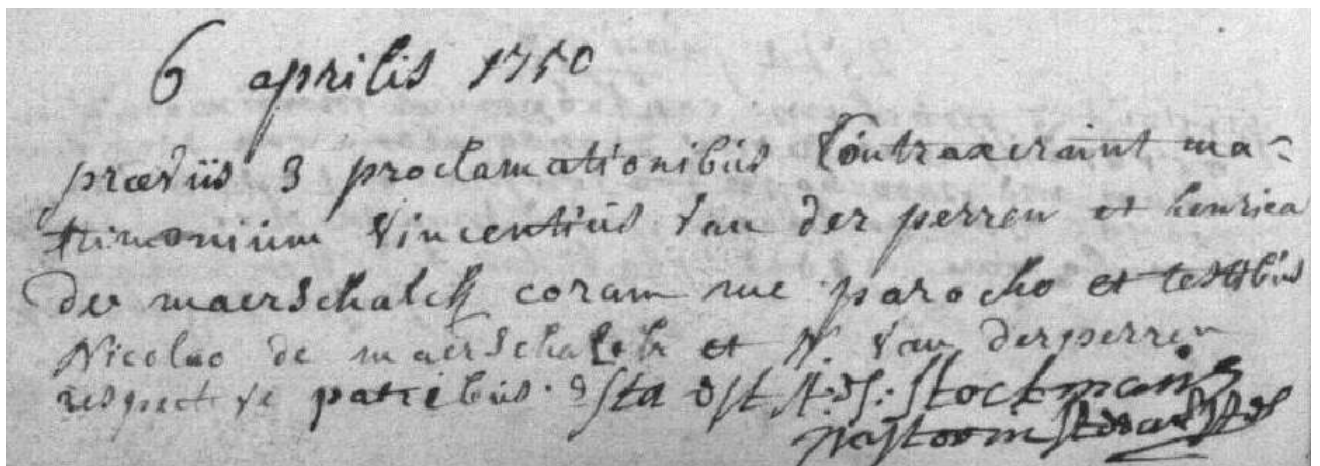 6 aprilis 1750
prœviis 3 proclamationibus Contraxerunt ma-
trimonium Vincentius Van der perren et henrica
de maerschalck coram me parocho et testibus
Nicolao de maerschalck et N. Van der perren
respective patribus. Ita est St. Stockmans